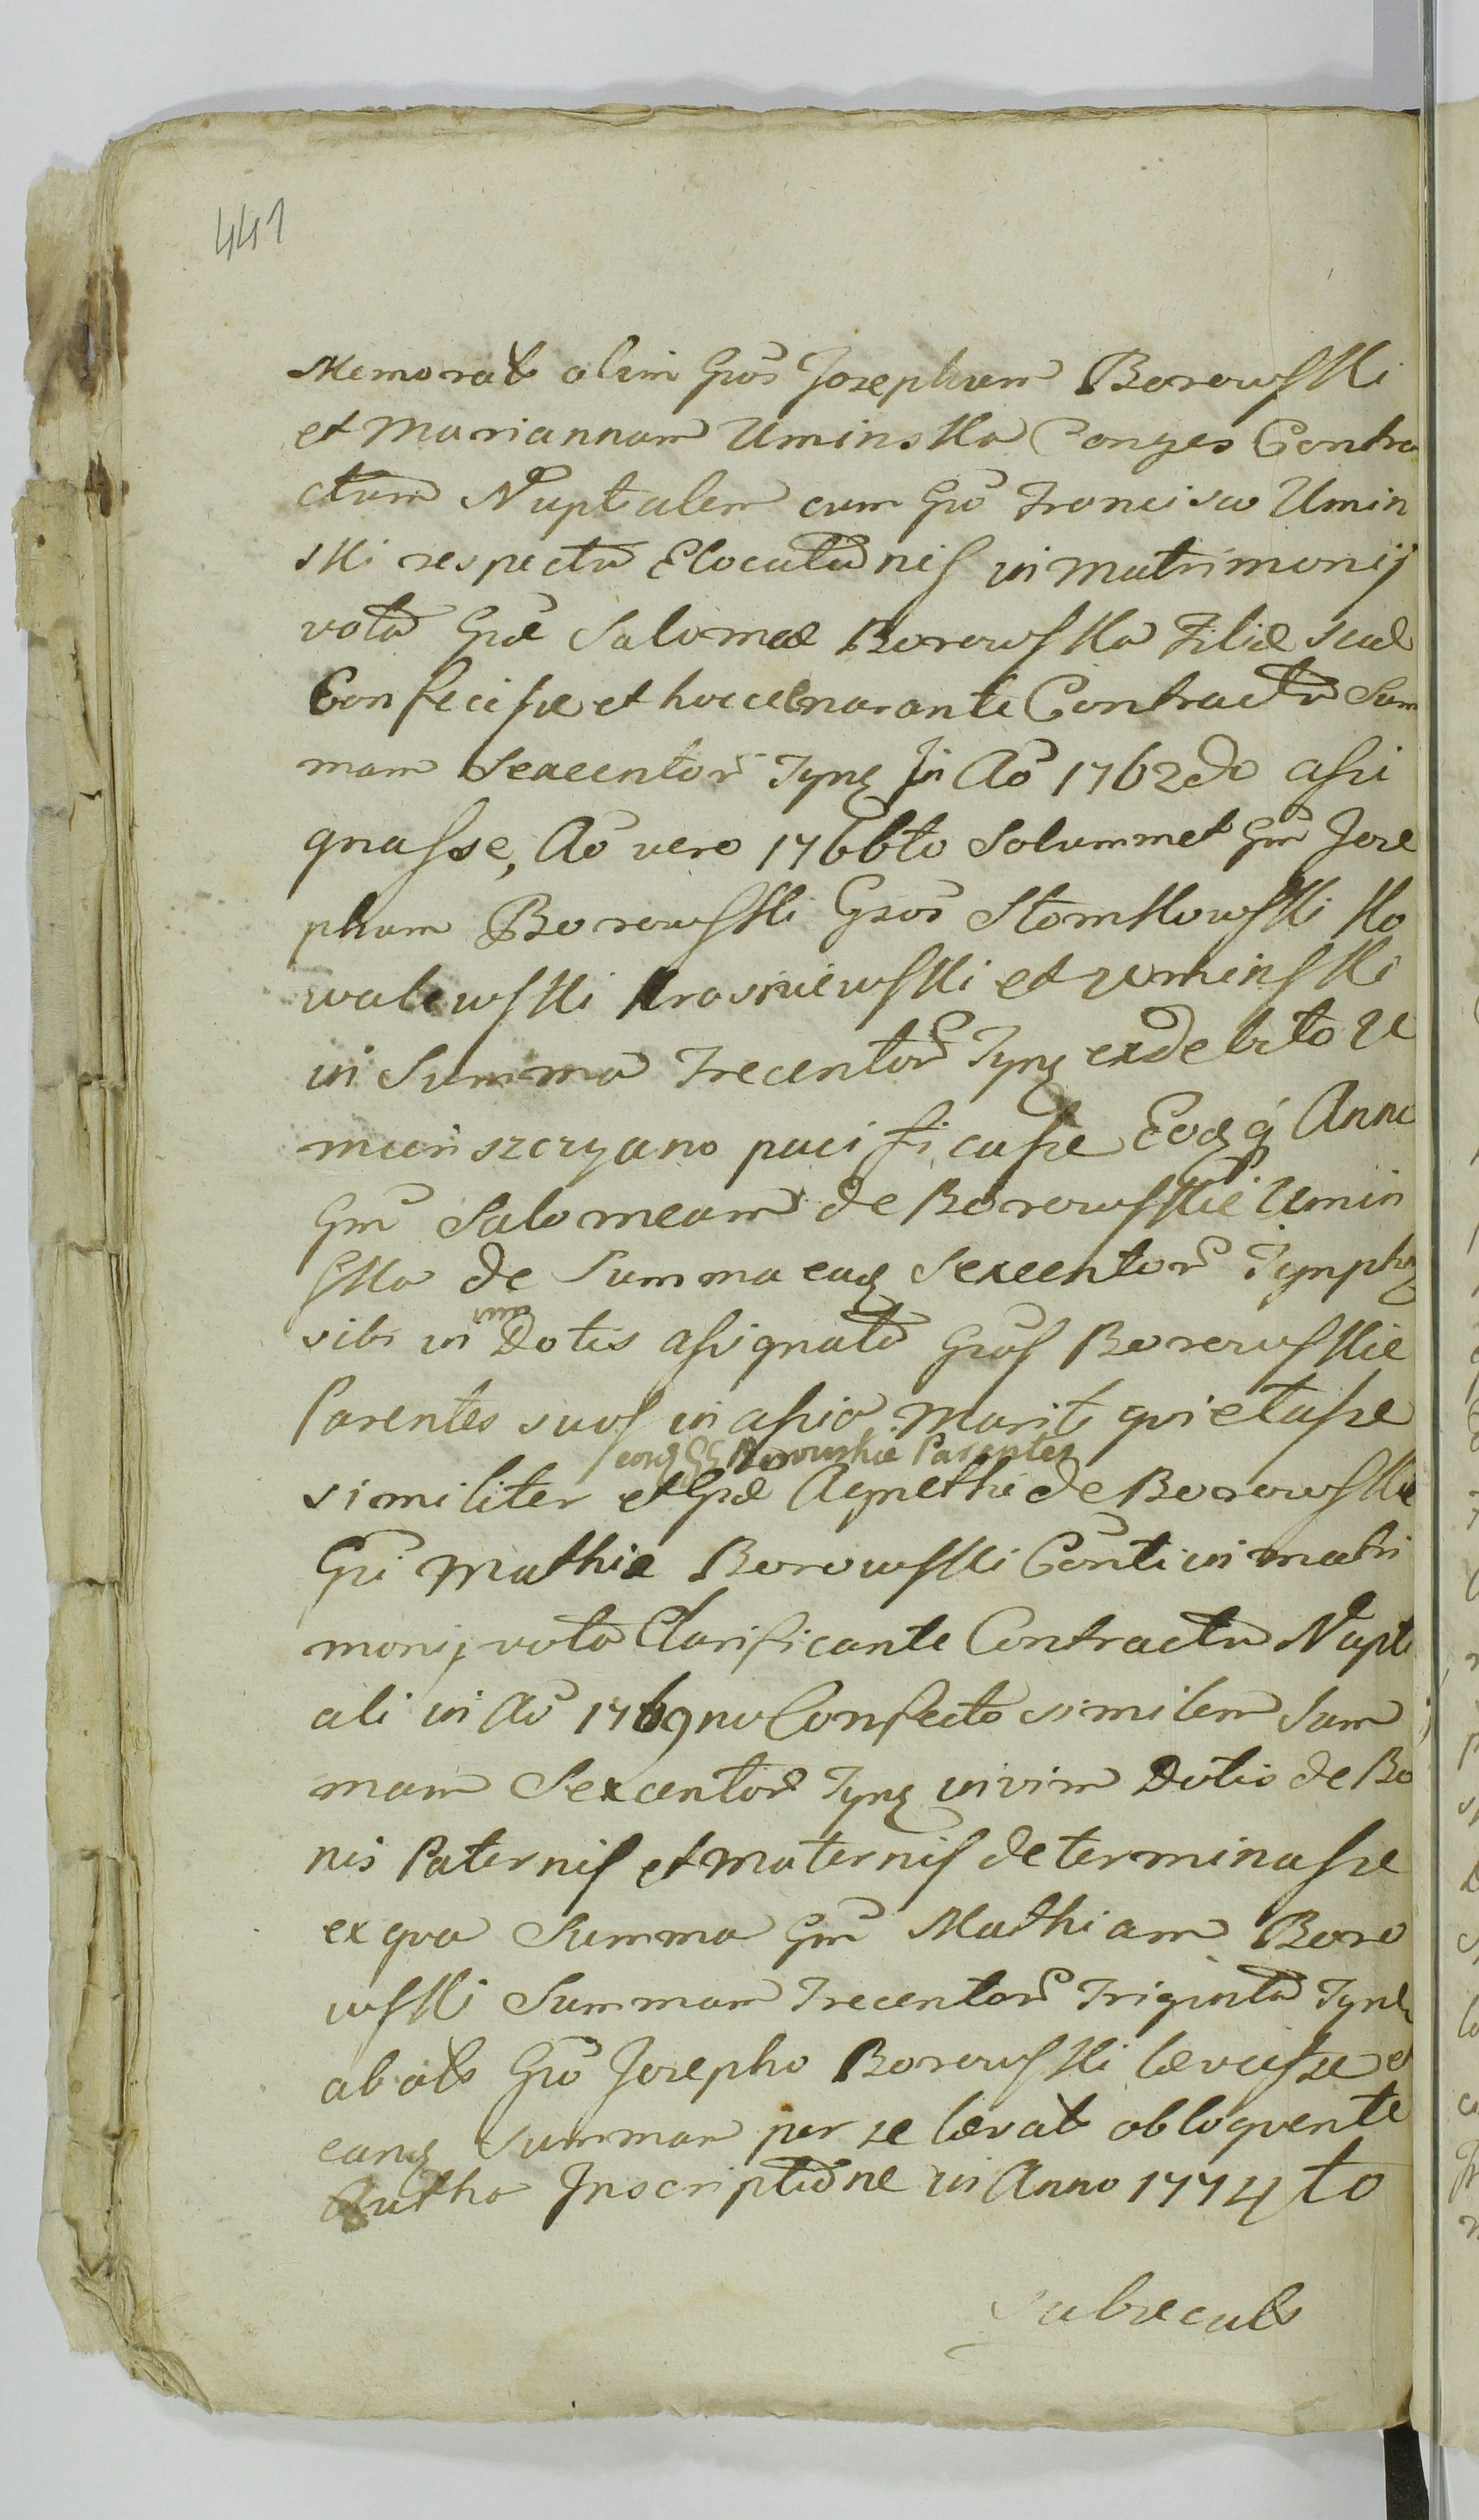 441
Memorat olim Gnos Josephum Borowski
et Mariannam Uminska Conges Contra
ctum Nuptialem cum Gno Francisco Umin
ski respectu Elocutionis in matrimonij
vota Gnae Salomeae Borowska Filiae suae
Confecisse et hocce enarante Contractu Sum
mam Sexcentor Tynf in Ao 1762do assi
gnasse, Ao vero 1766to Solummet Gm Jose
phum Borowski Gsos Stomkowski Ko
walewski Krasniewski et Uminski
in Summa Trecentor Tynf ex debito U
minszczyano pacificasse Eodq Anno
Gm Salomeam de Borowskie Umin
ska de Summa ead Sexcentor Tympho
sibi in vim Dotis assignata Gnos Borowskie
Parentes suos in assia Mariti quietasse
eosd GG Borowskie Parentes
similiter et Gnae Agnethi de Borowskie
Gni Mathia Borowski Conti in matri
monij vota Clarificante Contractu Nupti
ali in Ao 1769no Confecto similem Sum
mam Sexcentor Tynf in vim Dotis de Bo
nis Paternis et Maternis determinasse
ex qua Summa Gm Mathiam Boro
wski Summam Trecentor Triginta Tynf
ab olo Gno Josepho Borowski levasse et
eand Summam per se levat obloquente
Autha Inscriptione in Anno 1774to
subsecuts